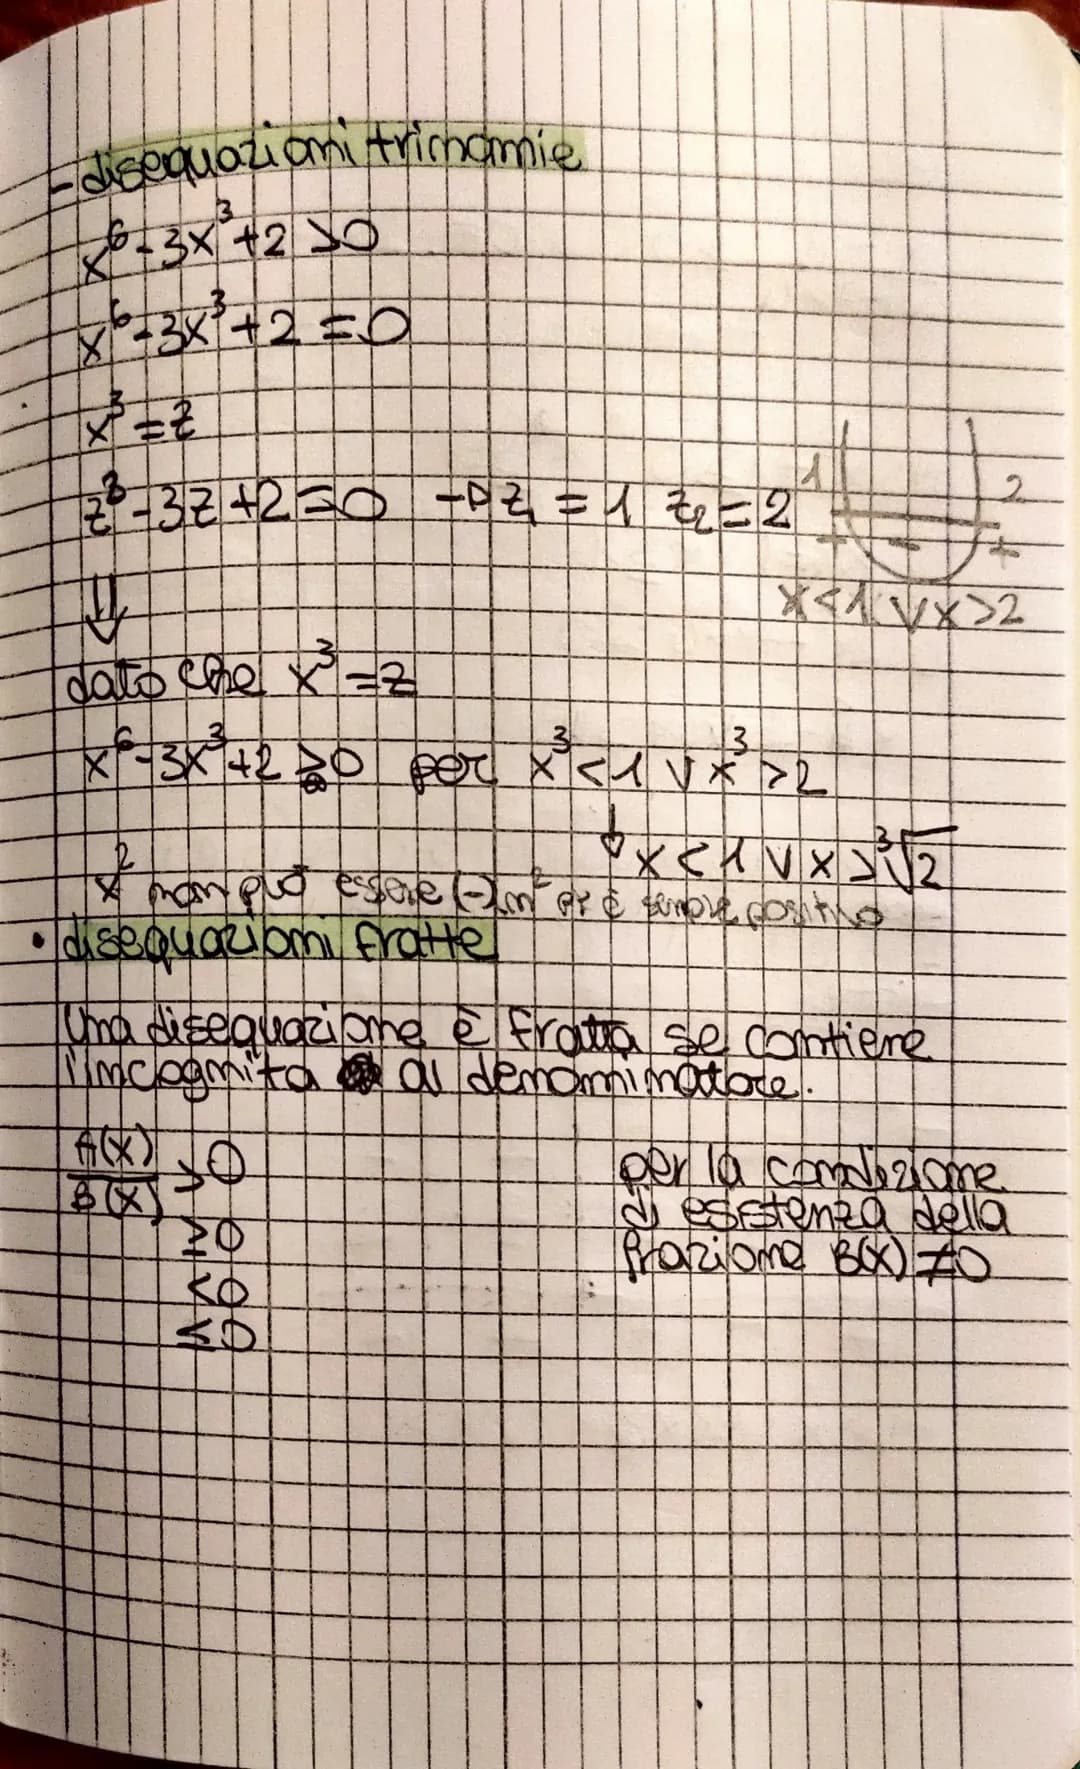 - disequazioni trinomie
x⁶-3x³+2>0
x⁶-3x³+2=0
x³=z
z²-3z+2=0 → z₁=1 z₂=2
1 2
+ - +
x<1 ∨ x>2
⇓
dato che x³=z
x⁶-3x³+2>0 per x³<1 ∨ x³>2
↓ x<1 ∨ x>³√2
x² non può essere (-) n² è sempre positivo
• disequazioni fratte
Una disequazione è fratta se contiene
l'incognita al denominatore.
A(x)/B(x) >0
≥0
<0
≤0
per la condizione
di esistenza della
frazione B(x)≠0